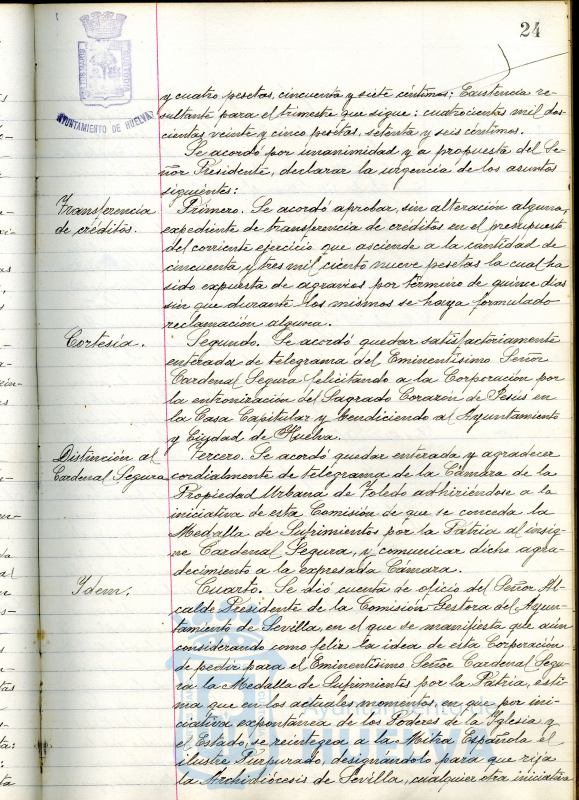 24
AYUNTAMIENTO DE HUELVA
y cuatro pesetas, cincuenta y siete céntimos; Existencia re-
sultante para el trimestre que sigue: cuatrocientas mil dos-
cientas veinte y cinco pesetas, setenta y seis céntimos.
Se acordó por unanimidad y a propuesta del Se-
ñor Presidente, declarar la urgencia de los asuntos
siguientes:
Transferencia
de créditos.
Primero. Se acordó aprobar, sin alteración alguna,
expediente de transferencia de créditos en el presupuesto
del corriente ejercicio que asciende a la cantidad de
cincuenta y tres mil ciento nueve pesetas la cual ha
sido expuesta de agravios por término de quince dias
sin que durante los mismos se haya formulado
reclamación alguna.
Cortesía.
Segundo. Se acordó quedar satisfactoriamente
enterada de telegrama del Eminentísimo Señor
Cardenal Segura felicitando a la Corporación por
la entronización del Sagrado Corazón de Jesús en
la Casa Capitular y bendiciendo al Ayuntamiento
y Ciudad de Huelva.
Distinción al
Cardenal Segura
Tercero. Se acordó quedar enterada y agradecer
cordialmente de telégrama de la Cámara de la
Propiedad Urbana de Toledo adhiriendose a la
iniciativa de esta Comisión de que se conceda la
Medalla de Sufrimientos por la Pátria al insig-
ne Cardenal Segura, y comunicar dicho agra-
decimiento a la expresada Cámara.
Ydem.
Cuarto. Se dió cuenta de oficio del Señor Al-
calde Presidente de la Comisión Gestora del Ayun-
tamiento de Sevilla, en el que se manifiesta que aún
considerando como feliz la idea de esta Corporación
de pedir para el Eminentísimo Señor Cardenal Segu-
ra la Medalla de Sufrimientos por la Pátria, esti-
ma que en los actuales momentos, en que por ini-
ciativa expontánea de los Poderes de la Yglesia y
el Estado, se reintegra a la Mitra Española el
ilustre Purpurado, designandolo para que rija
la Archidiócesis de Sevilla, cualquier otra iniciativa